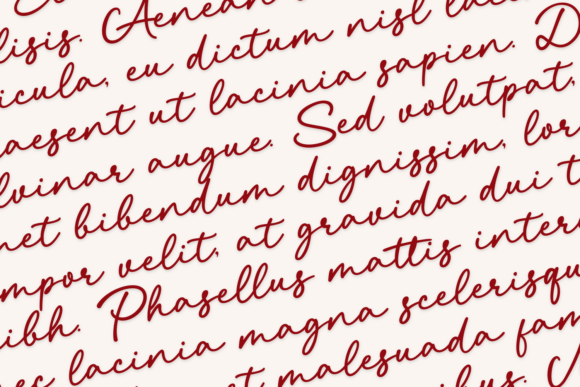 lisis. Aenean
icula, eu dictum nisl
aesent ut lacinia sapien. D
lvinar augue. Sed volutpat,
met bibendum dignissim, lor
mpor velit, at gravida dui t
ibh. Phasellus mattis inter
ec lacinia magna scelerisqu
et malesuada fam
ibus.